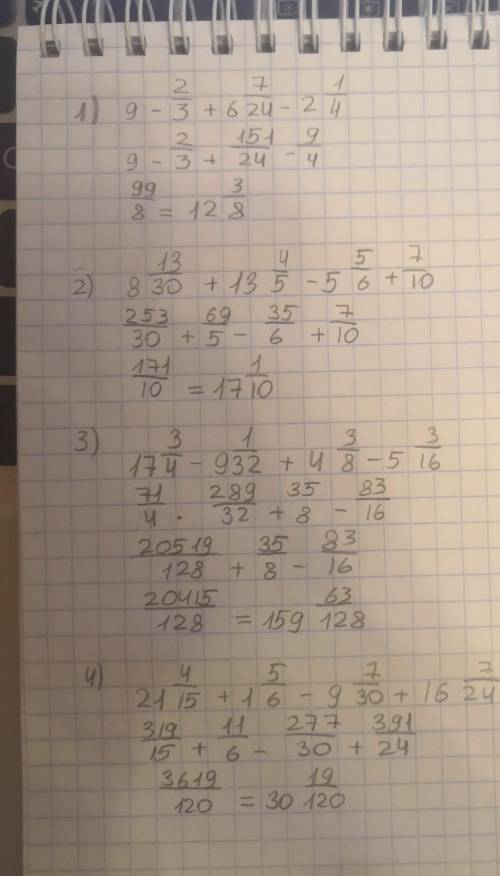 1) 9 - 2/3 + 6 7/24 - 2 1/4
9 - 2/3 + 151/24 - 9/4
99/8 = 12 3/8
2) 8 13/30 + 13 4/5 - 5 5/6 + 7/10
253/30 + 69/5 - 35/6 + 7/10
171/10 = 17 1/10
3) 17 3/4 - 9 1/32 + 4 3/8 - 5 3/16
71/4 · 289/32 + 35/8 - 83/16
20519/128 + 35/8 - 83/16
20415/128 = 159 63/128
4) 21 4/15 + 1 5/6 - 9 7/30 + 16 7/24
319/15 + 11/6 - 277/30 + 391/24
3619/120 = 30 19/120